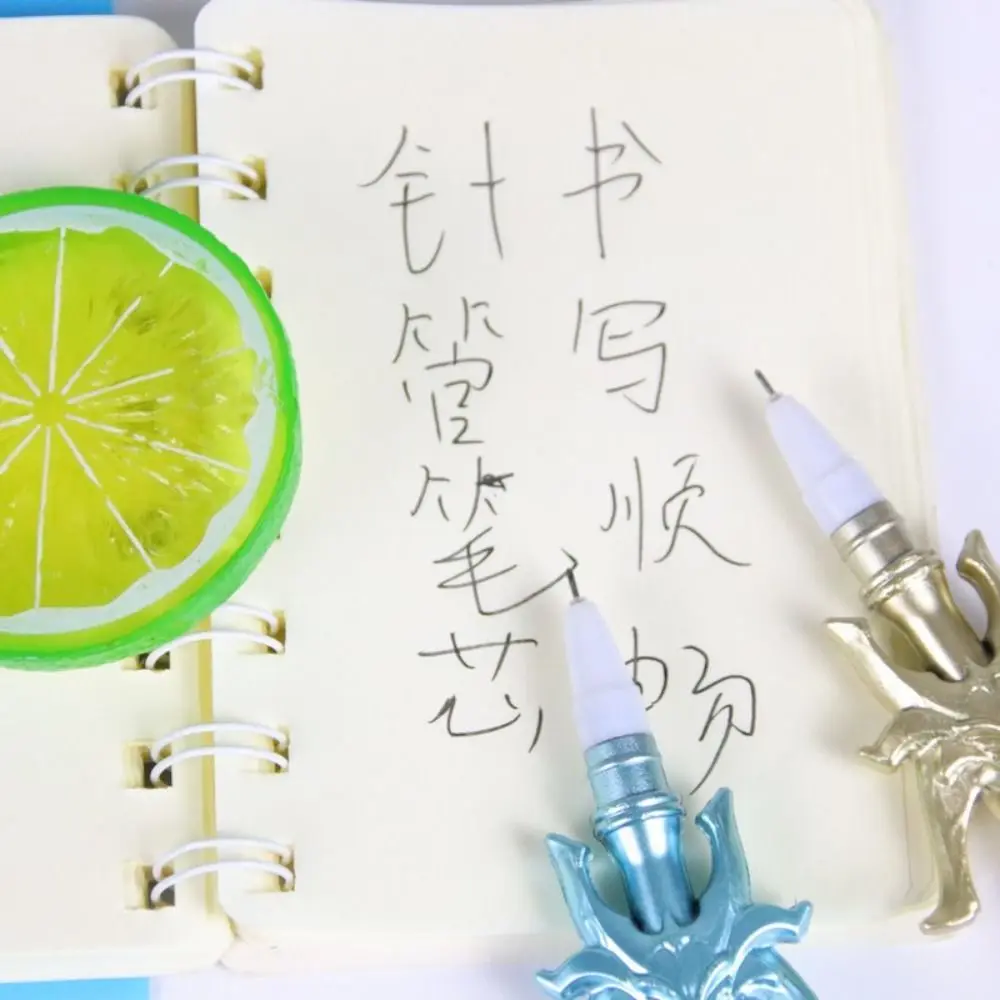 针管笔芯
书写顺畅